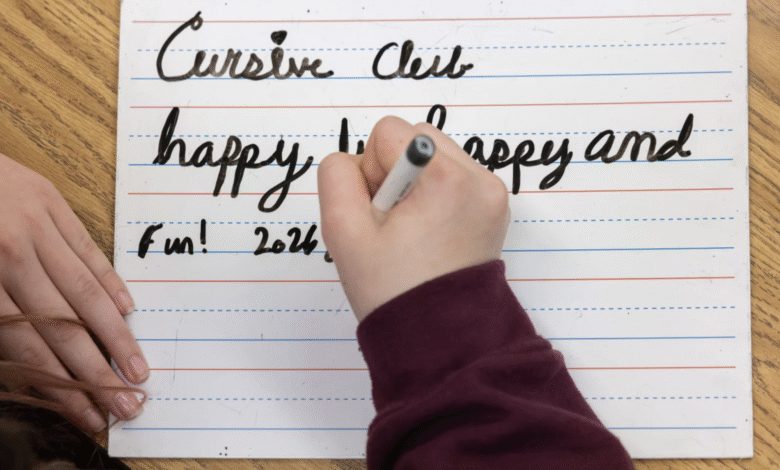 Cursive Club
happy happy and
Fun! 2026